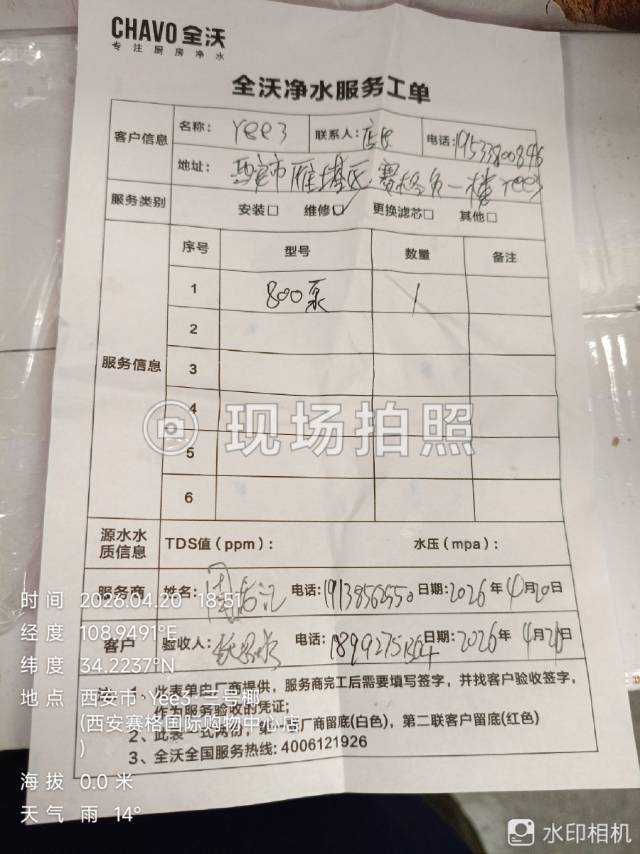 CHAVO 全沃
专注厨房净水
全沃净水服务工单
客户信息
名称: Yee3
联系人: 店长
电话:
地址: 西安市雁塔区赛格负一楼Yee3
服务类别
安装□ 维修☑ 更换滤芯□ 其他□
服务信息
序号 型号 数量 备注
1 800泵 1
2
3
4
现场拍照
5
6
源水水质信息
TDS值（ppm）: 水压（mpa）:
服务商 姓名: 电话: 19138562550 日期: 2026年4月20日
客户 验收人: 电话: 日期: 2026年4月20日
注: 1、此表单由厂商提供，服务商完工后需要填写签字，并找客户验收签字，
作为服务验收的凭证;
2、此表一式两份，第一联厂商留底(白色)，第二联客户留底(红色)
3、全沃全国服务热线: 4006121926
时间 2026.04.20 18:51
经度 108.9491°E
纬度 34.2237°N
地点 西安市·Yee3 三号椰
(西安赛格国际购物中心店
)
海拔 0.0米
天气 雨 14°
水印相机